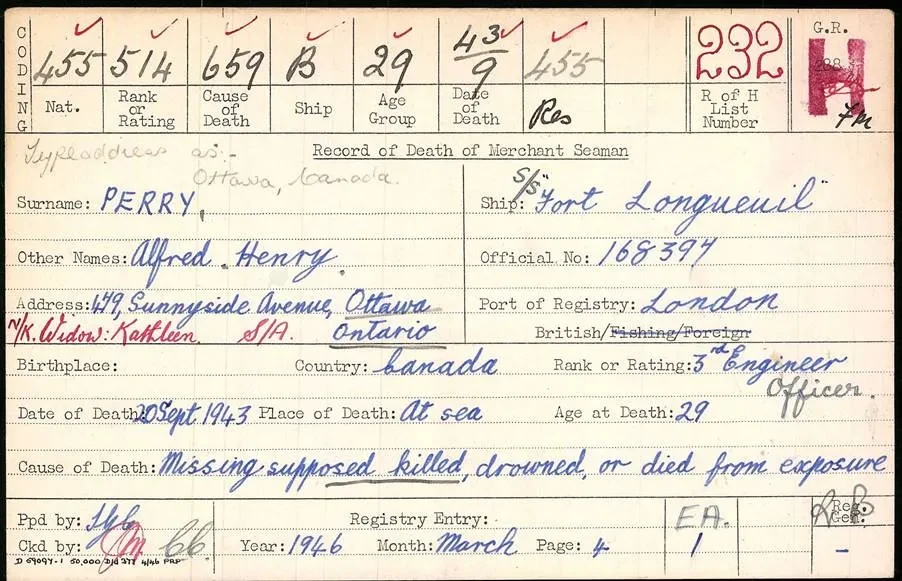 CODING
455 514 659 B 29 43/9 455 232 G.R.
H
Nat. Rank or Rating Cause of Death Ship Age Group Date of Death Res R of H List Number 7m
Typeaddress as:-
Ottawa, Canada.
Record of Death of Merchant Seaman
Surname: PERRY, Ship: S/S "Fort Longueuil"
Other Names: Alfred Henry. Official No: 168394
Address: 479, Sunnyside Avenue, Ottawa Port of Registry: London
N/K. Widow: Kathleen S/A. Ontario British/Fishing/Foreign
Birthplace: Country: Canada Rank or Rating: 3rd Engineer
Officer.
Date of Death: 20 Sept 1943 Place of Death: At sea Age at Death: 29
Cause of Death: Missing supposed killed, drowned, or died from exposure
Ppd by: Registry Entry: EA. Reg. Gen.
Ckd by: Year: 1946 Month: March Page: 4 1 -
D 69094-1 50,000 D/d 377 4/46 PRP